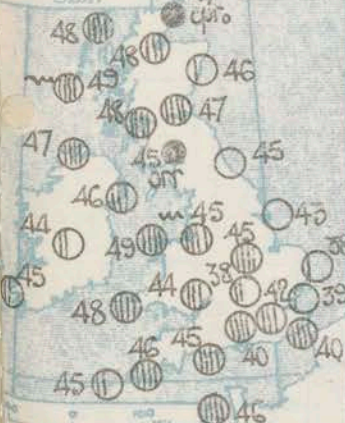 48
48
46
49
48
47
47
45
45
46
45
43
44
49
45
38
45
44
38
42
39
48
45
40
40
46
45
46